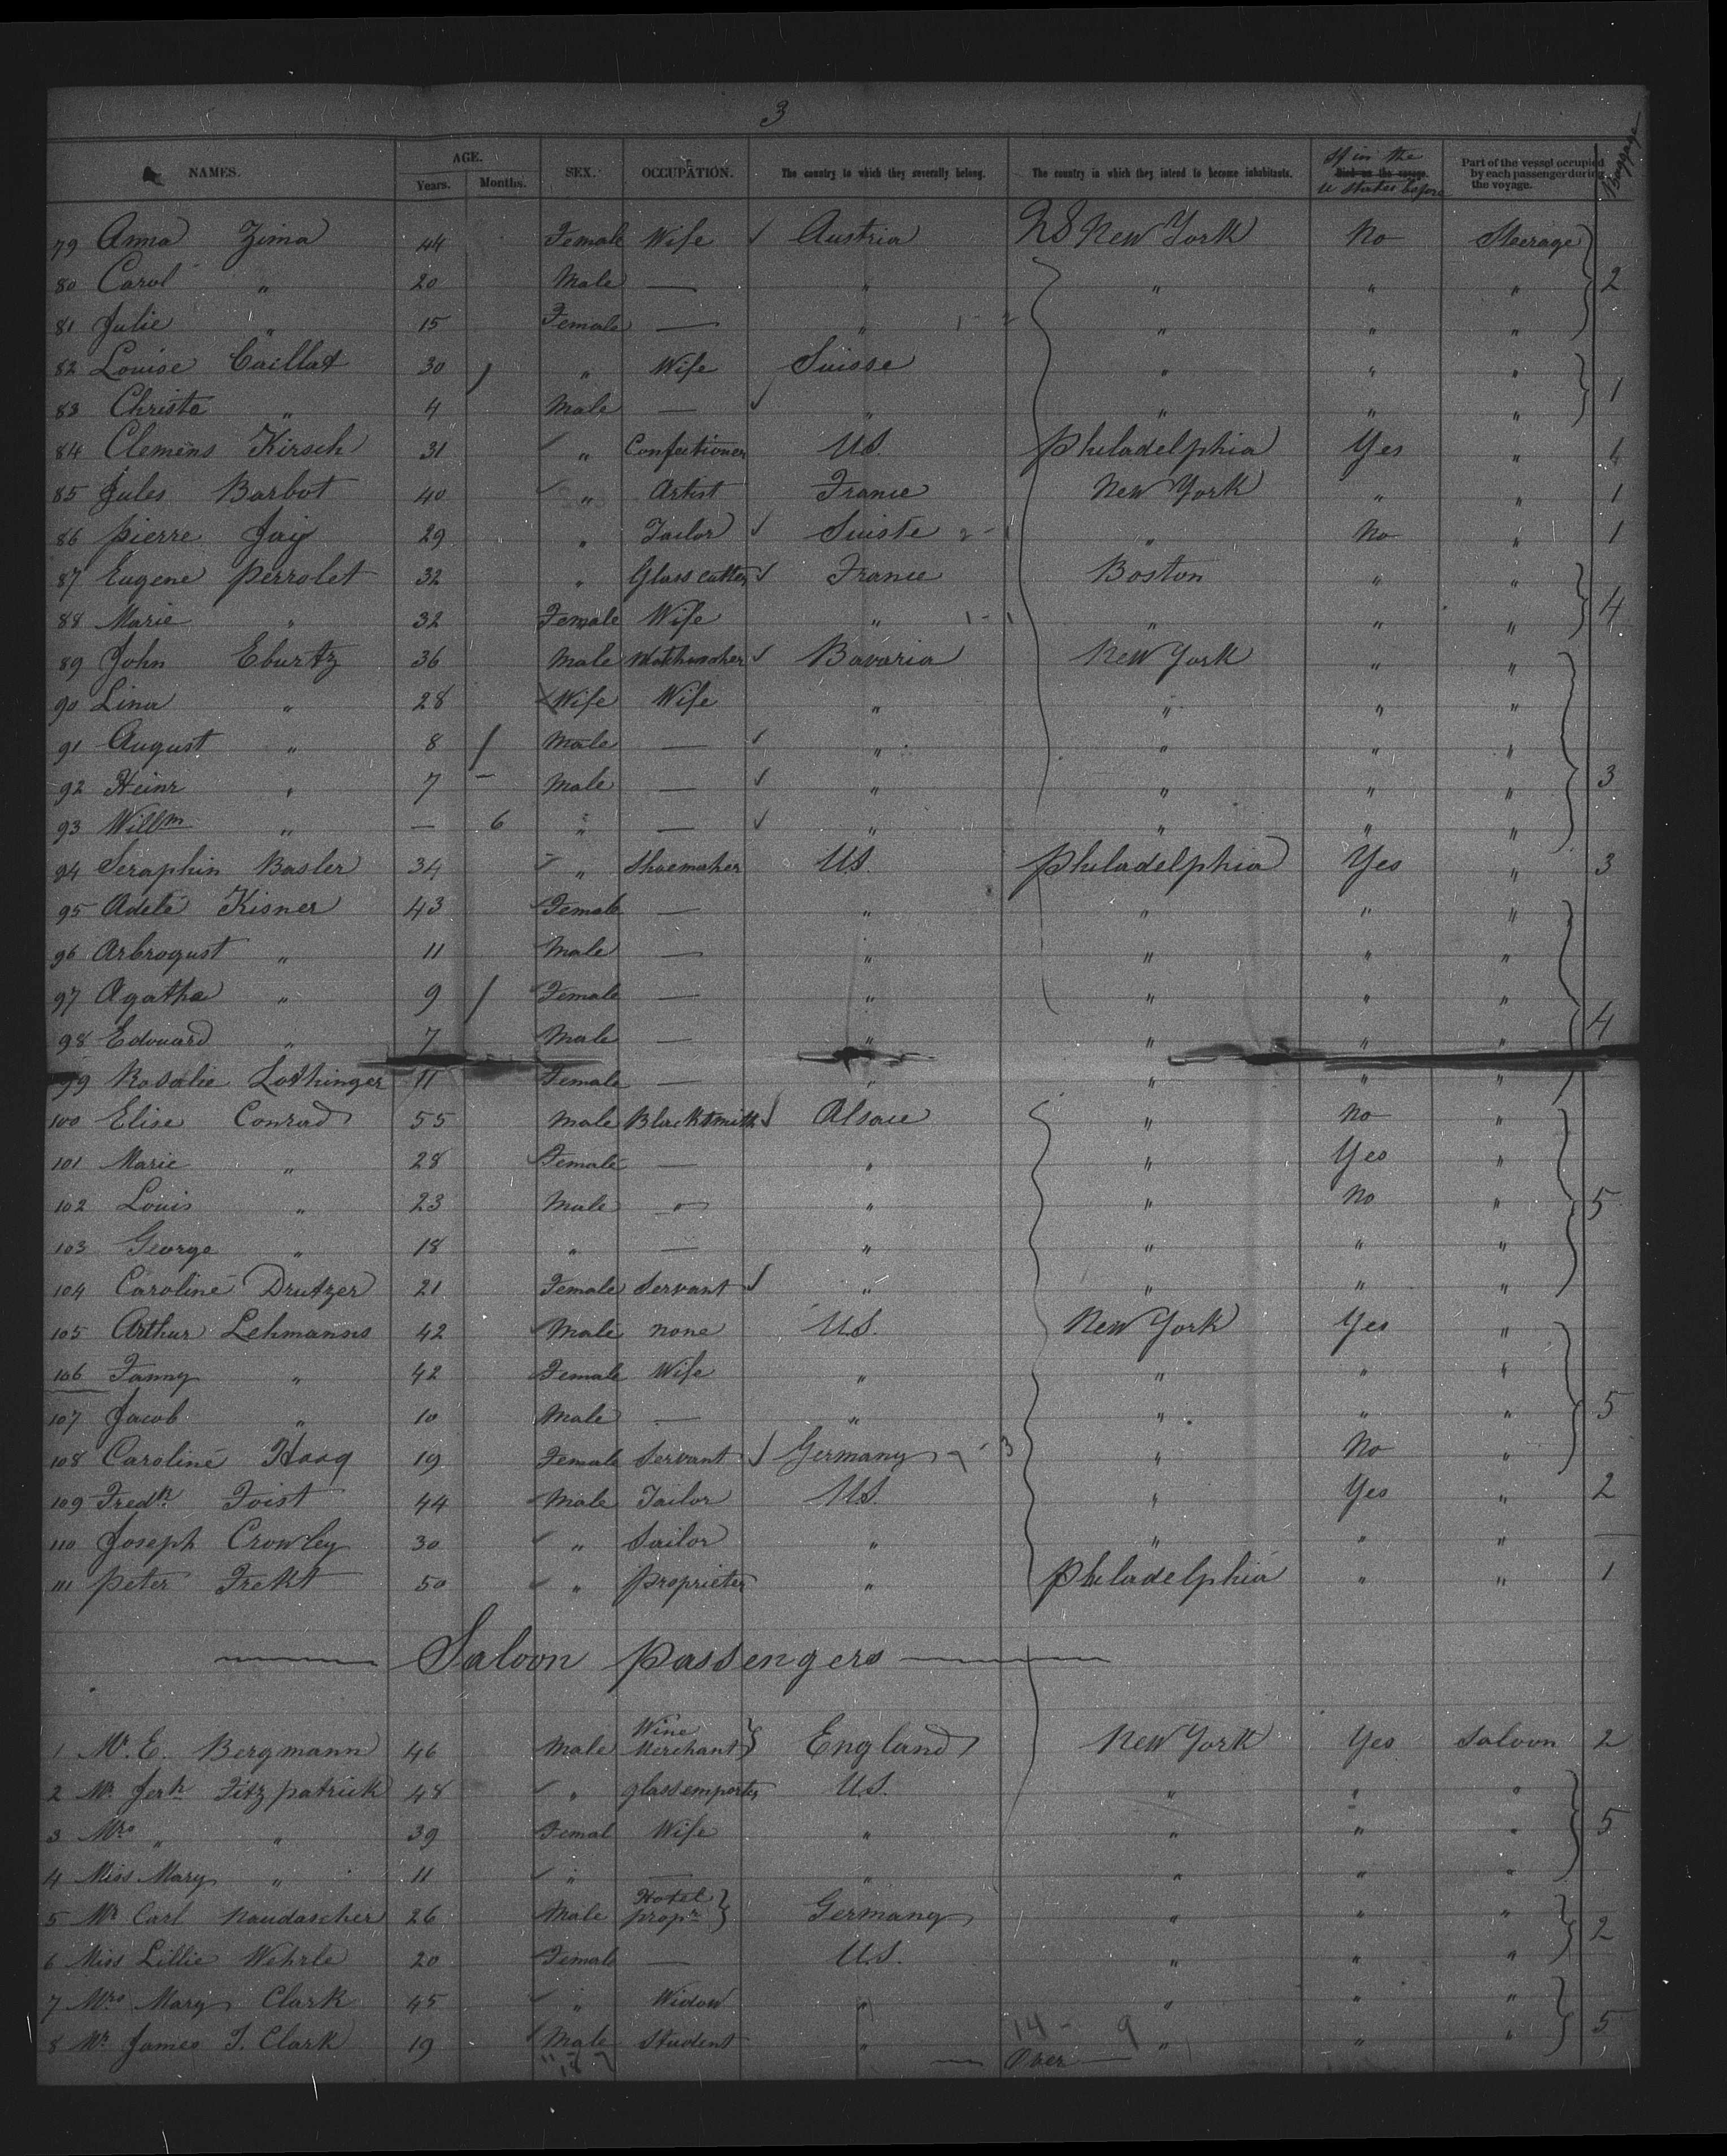 3
NAMES. AGE. Years. Months. SEX. OCCUPATION. The country to which they severally belong. The country in which they intend to become inhabitants. If in the Died on the voyage. U States before Part of the vessel occupied by each passenger during the voyage. Baggage
79 Anna Zima 44 Female Wife ✓ Austria New York No Steerage
80 Carol " 20 Male — " " " " 2
81 Julie " 15 Female — " " " "
82 Louise Caillat 30 " Wife Suisse " " "
83 Christe " 4 Male — ✓ " " " " 1
84 Clemens Kirsch 31 ✓ " Confectioner U.S. Philadelphia Yes " 1
85 Jules Barbot 40 ✓ " Artist France New York " " 1
86 Pierre Jay 29 " Tailor ✓ Suisse " No " 1
87 Eugene Perrolet 32 " Glass cutter ✓ France Boston " "
88 Marie " 32 Female Wife " 1-1 " " " 4
89 John Eburtz 36 Male Watchmaker ✓ Bavaria New York " "
90 Lina " 28 Wife Wife " " " "
91 August " 8 Male — ✓ " " " "
92 Heinr " 7 — Male — ✓ " " " " 3
93 Willm " — 6 " — ✓ " " " "
94 Seraphin Basler 34 ✓ " Shoemaker U.S. Philadelphia Yes " 3
95 Adele Kisner 43 Female — " " " "
96 Arbrogust " 11 Male — " " " "
97 Agatha " 9 Female — " " " "
98 Edouard " 7 Male — " " " " 4
99 Rosalie Lothinger 11 Female — " " " "
100 Elise Conrad 55 Male Blacksmith ✓ Alsace " No "
101 Marie " 28 Female — " " Yes "
102 Louis " 23 Male " " " No " 5
103 George " 18 " — " " " "
104 Caroline Drutzer 21 Female Servant ✓ " " " "
105 Arthur Lehmanns 42 Male none U.S. New York Yes "
106 Fanny " 42 Female Wife " " " "
107 Jacob " 10 Male — " " " " 5
108 Caroline Haag 19 Female Servant ✓ Germany " No "
109 Fredk Foist 44 Male Tailor U.S. " Yes " 2
110 Joseph Crowley 30 ✓ " Sailor " " " " —
111 Peter Trekt 50 ✓ " Proprieter " Philadelphia " " 1
Saloon Passengers
1 Mr. E. Bergmann 46 Male Wine Merchant England New York Yes Saloon 2
2 Mr Jerh Fitzpatrick 48 ✓ " glass emporter U.S. " " "
3 Mrs " " 39 Femal Wife " " " " 5
4 Miss Mary " 11 ✓ " — " " " "
5 Mr Carl Naudascher 26 Male Hotel propr Germany " " "
6 Miss Lillie Wehrle 20 Female — U.S. " " " 2
7 Mrs Mary Clark 45 ✓ " Widow " " " "
8 Mr James T. Clark 19 ✓ Male Student " " " " 5
14 - 9
— Over —